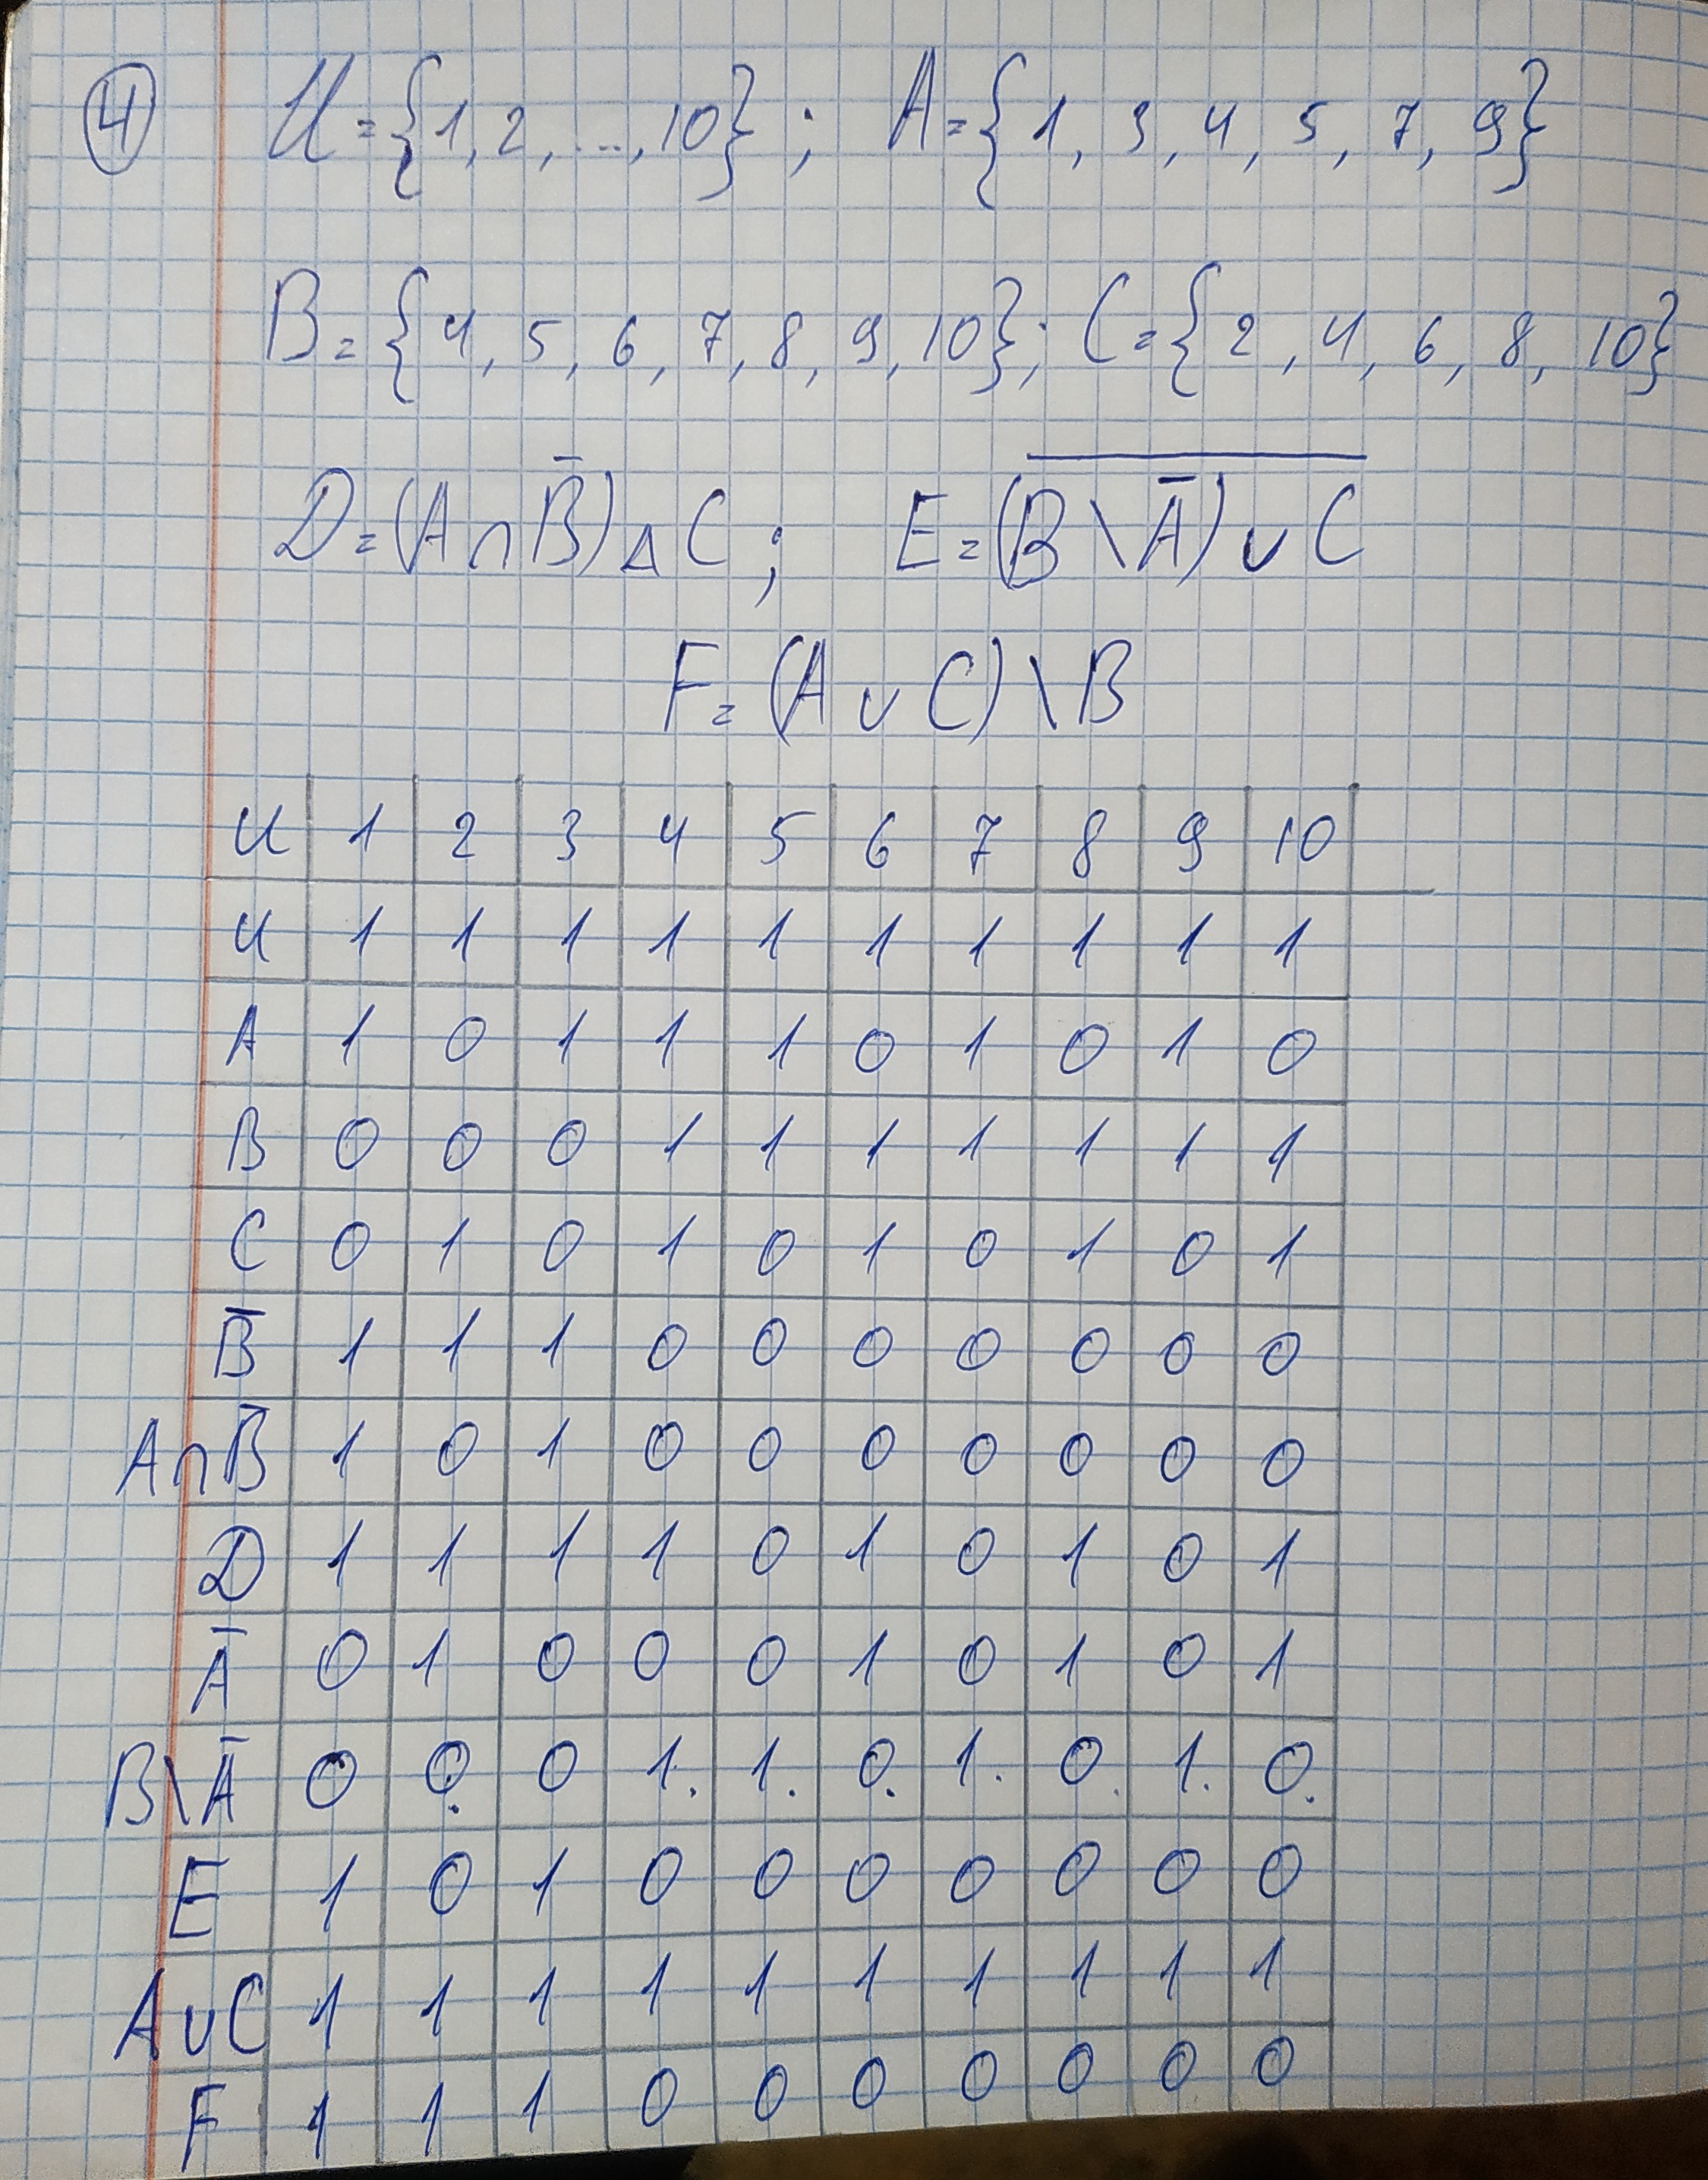 4 U = {1, 2, ..., 10}; A = {1, 3, 4, 5, 7, 9}
B = {4, 5, 6, 7, 8, 9, 10}; C = {2, 4, 6, 8, 10}
D = (A ∩ B̅) △ C; E = \overline{(B \ A̅) ∪ C}
F = (A ∪ C) \ B
U 1 2 3 4 5 6 7 8 9 10
U 1 1 1 1 1 1 1 1 1 1
A 1 0 1 1 1 0 1 0 1 0
B 0 0 0 1 1 1 1 1 1 1
C 0 1 0 1 0 1 0 1 0 1
B̅ 1 1 1 0 0 0 0 0 0 0
A∩B̅ 1 0 1 0 0 0 0 0 0 0
D 1 1 1 1 0 1 0 1 0 1
A̅ 0 1 0 0 0 1 0 1 0 1
B\A̅ 0 0. 0 1. 1. 0. 1. 0. 1. 0.
E 1 0 1 0 0 0 0 0 0 0
A∪C 1 1 1 1 1 1 1 1 1 1
F 1 1 1 0 0 0 0 0 0 0